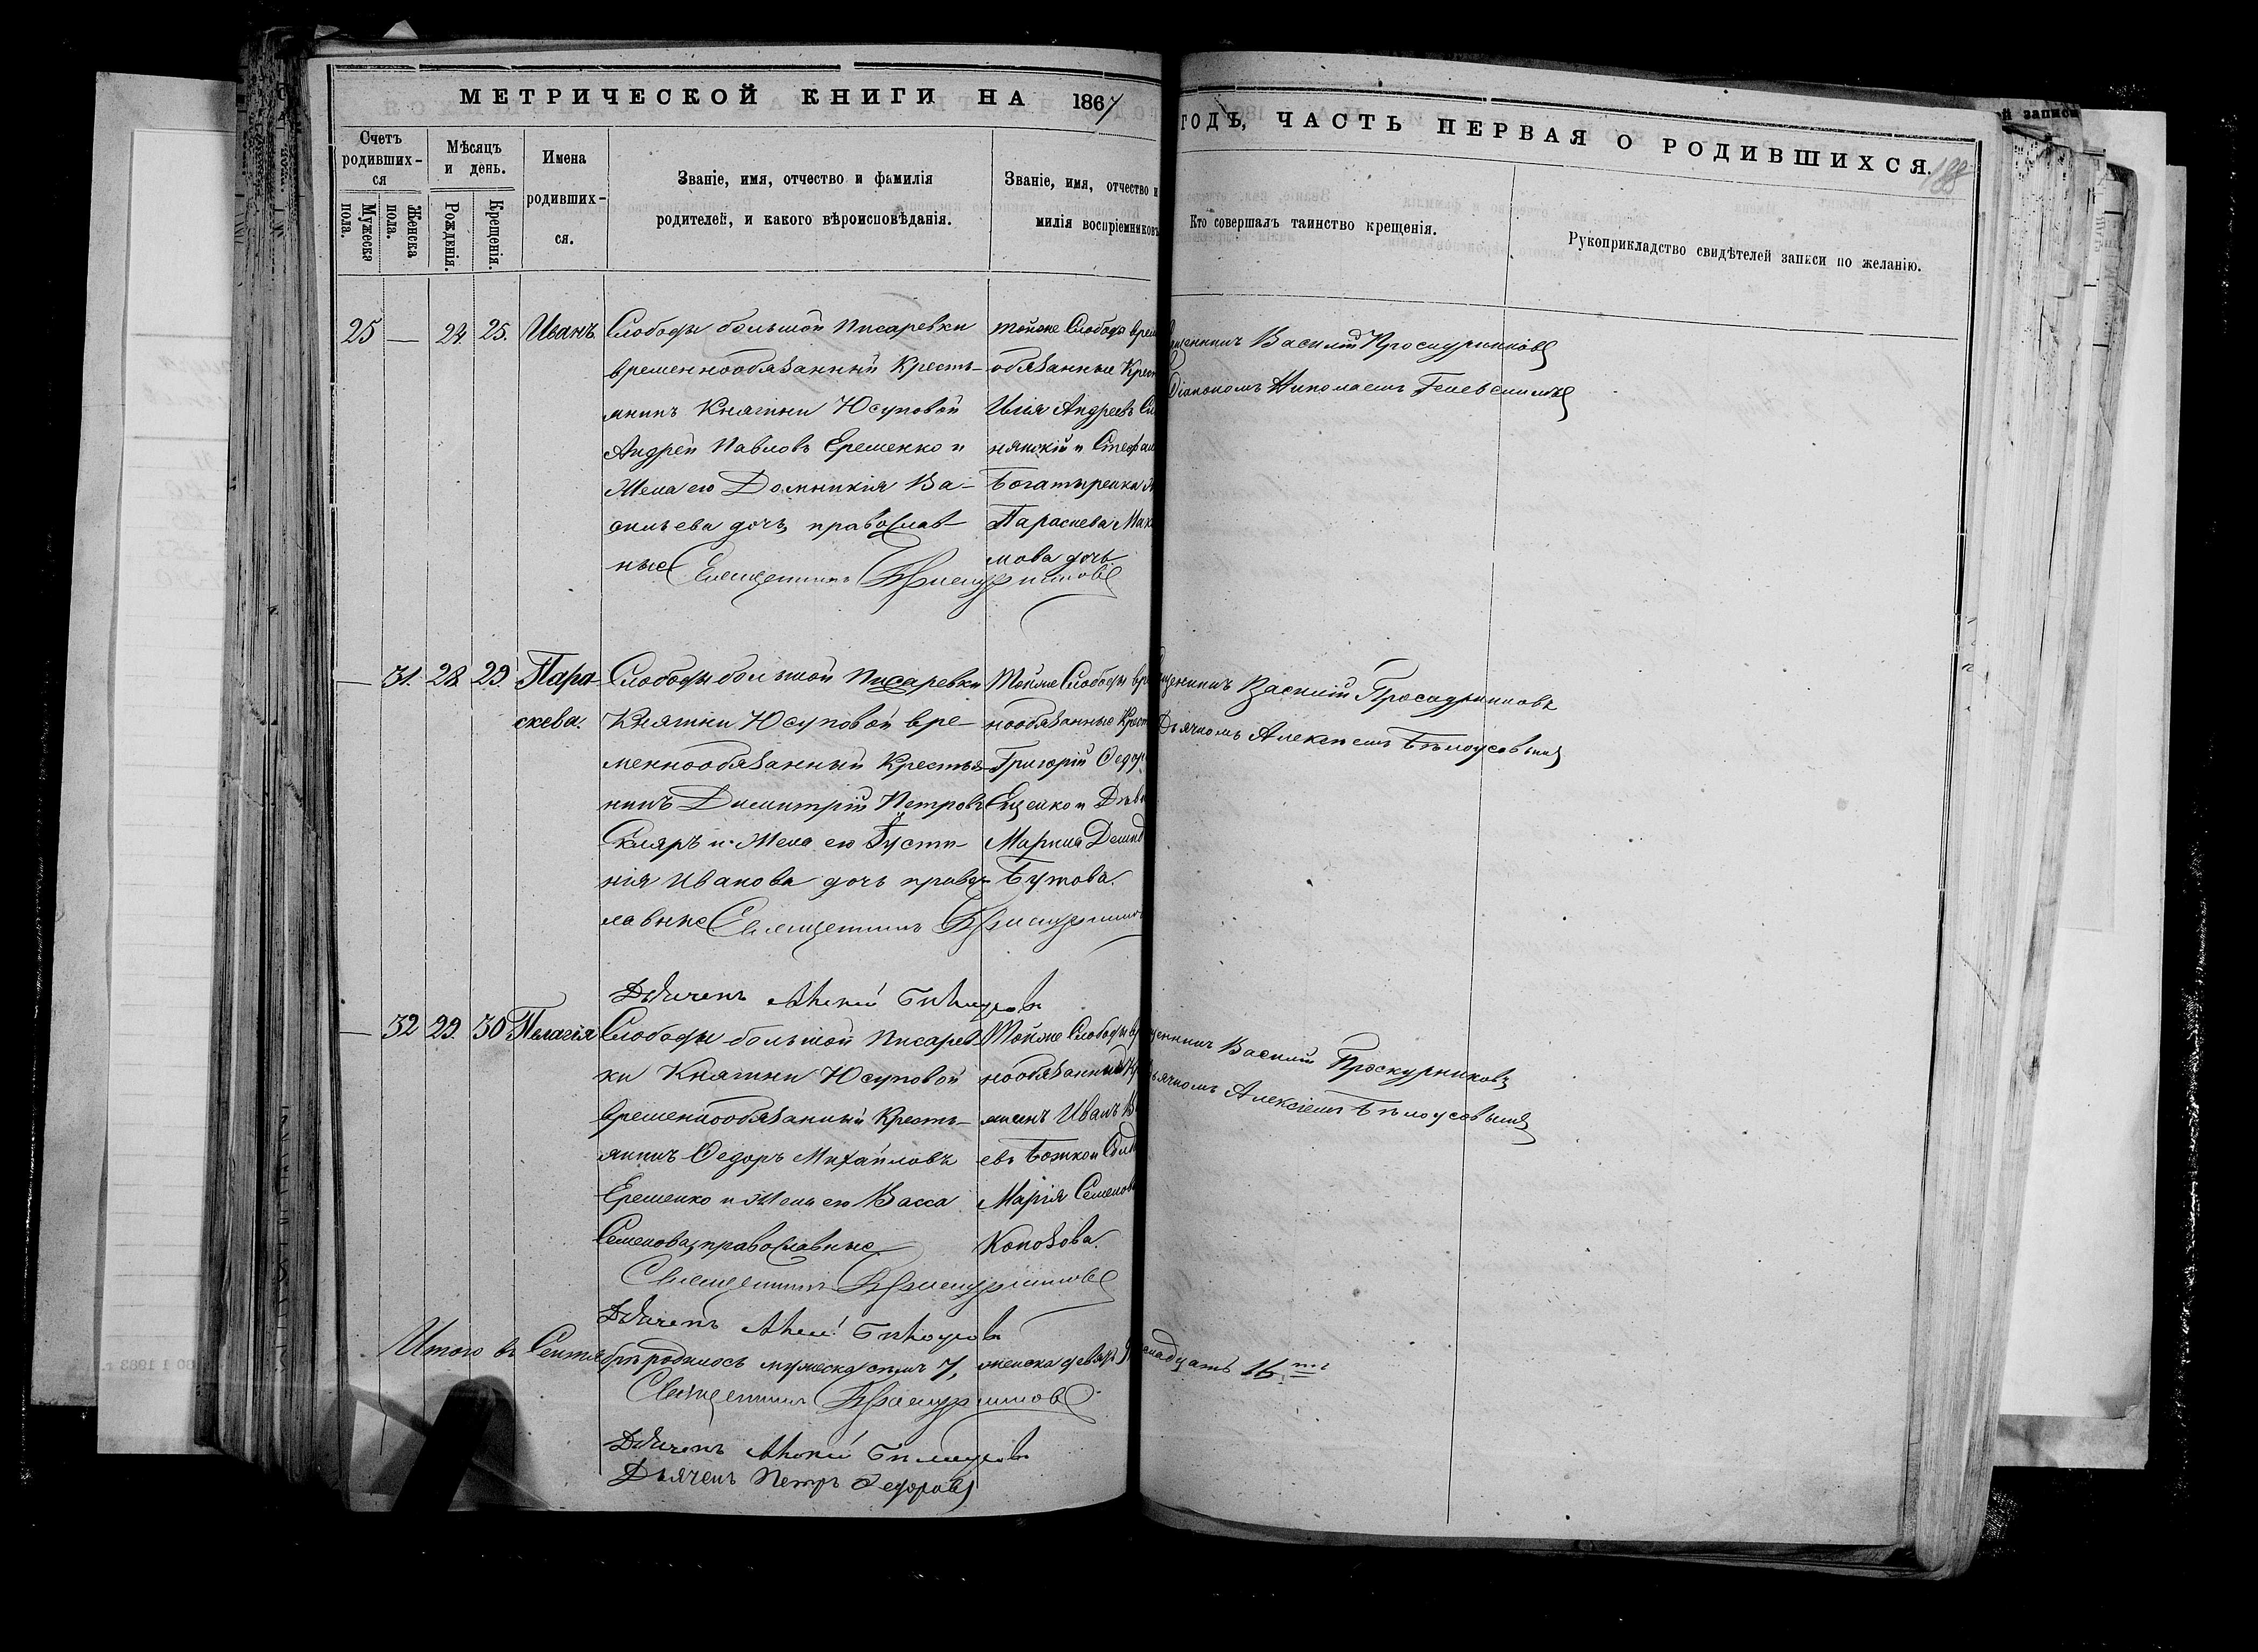 МЕТРИЧЕСКОЙ КНИГИ НА 1867
ГОДЪ, ЧАСТЬ ПЕРВАЯ О РОДИВШИХСЯ.
188
Счетъ родивших-ся
Мужеска пола.
Женска пола.
Мѣсяцъ и день.
Рожденія.
Крещенія.
Имена родивших-ся.
Званіе, имя, отчество и фамилія
родителей, и какого вѣроисповѣданія.
Званіе, имя, отчество и
милія воспріемниковъ
Кто совершалъ таинство крещенія.
Рукоприкладство свидѣтелей записи по желанію.
25 — 24. 25. Иванъ.
Слободы большой Писаревки
временнообязанный Кресть-
янинъ Княгини Юсуповой
Андрей Павловъ Еременко и
Жена его Домникія Ва-
сильева дочь, православ-
ные
Священникъ Проскурниковъ
тойже Слободы врем
обязанные Крест
Илія Андреевъ
нянскій и Стефан
Богатыренка
Параскева Мак
мова дочь
щенникъ Василій Проскурниковъ
Діакономъ Николаемъ
— 31. 28. 29. Пара-
скева.
Слободы большой Писаревки
Княгини Юсуповой вре-
меннообязанный Крестья-
нинъ Димитрій Петровъ
Скляръ и Жена его Густи-
нія Иванова дочь правос-
лавные
Священникъ Проскурников
Дьячекъ Алексѣй Бѣлоусовъ
Тойже Слободы вре
нообязанные Крест
Григорій Федор
Еценко и Дѣви
Марина Демид
Бутова.
щенникъ Василій Проскурниковъ
Дьячкомъ Алексѣемъ Бѣлоусовымъ
— 32 29. 30 Пелагія
Слободы большой Писарев-
ки Княгини Юсуповой
временнообязанный Кресть-
янинъ Федоръ Михайловъ
Еременко и Жена его Васса
Семенова, православные
Священникъ Проскурниковъ
Дьячекъ Алексѣй Бѣлоусовъ
Тойже Слободы вр
нообязанный Кр
янинъ Иванъ
евъ Божко и
Марія Семенова
Конозова.
щенникъ Василій Проскурниковъ
ьячкомъ Алексіемъ Бѣлоусовымъ
Итого въ Сентябрѣ родилось мужеска семь 7, женска девять 16
Священникъ Проскурниковъ
Дьячекъ Алексѣй Бѣлоусовъ
Дьячекъ Петръ Федоровъ